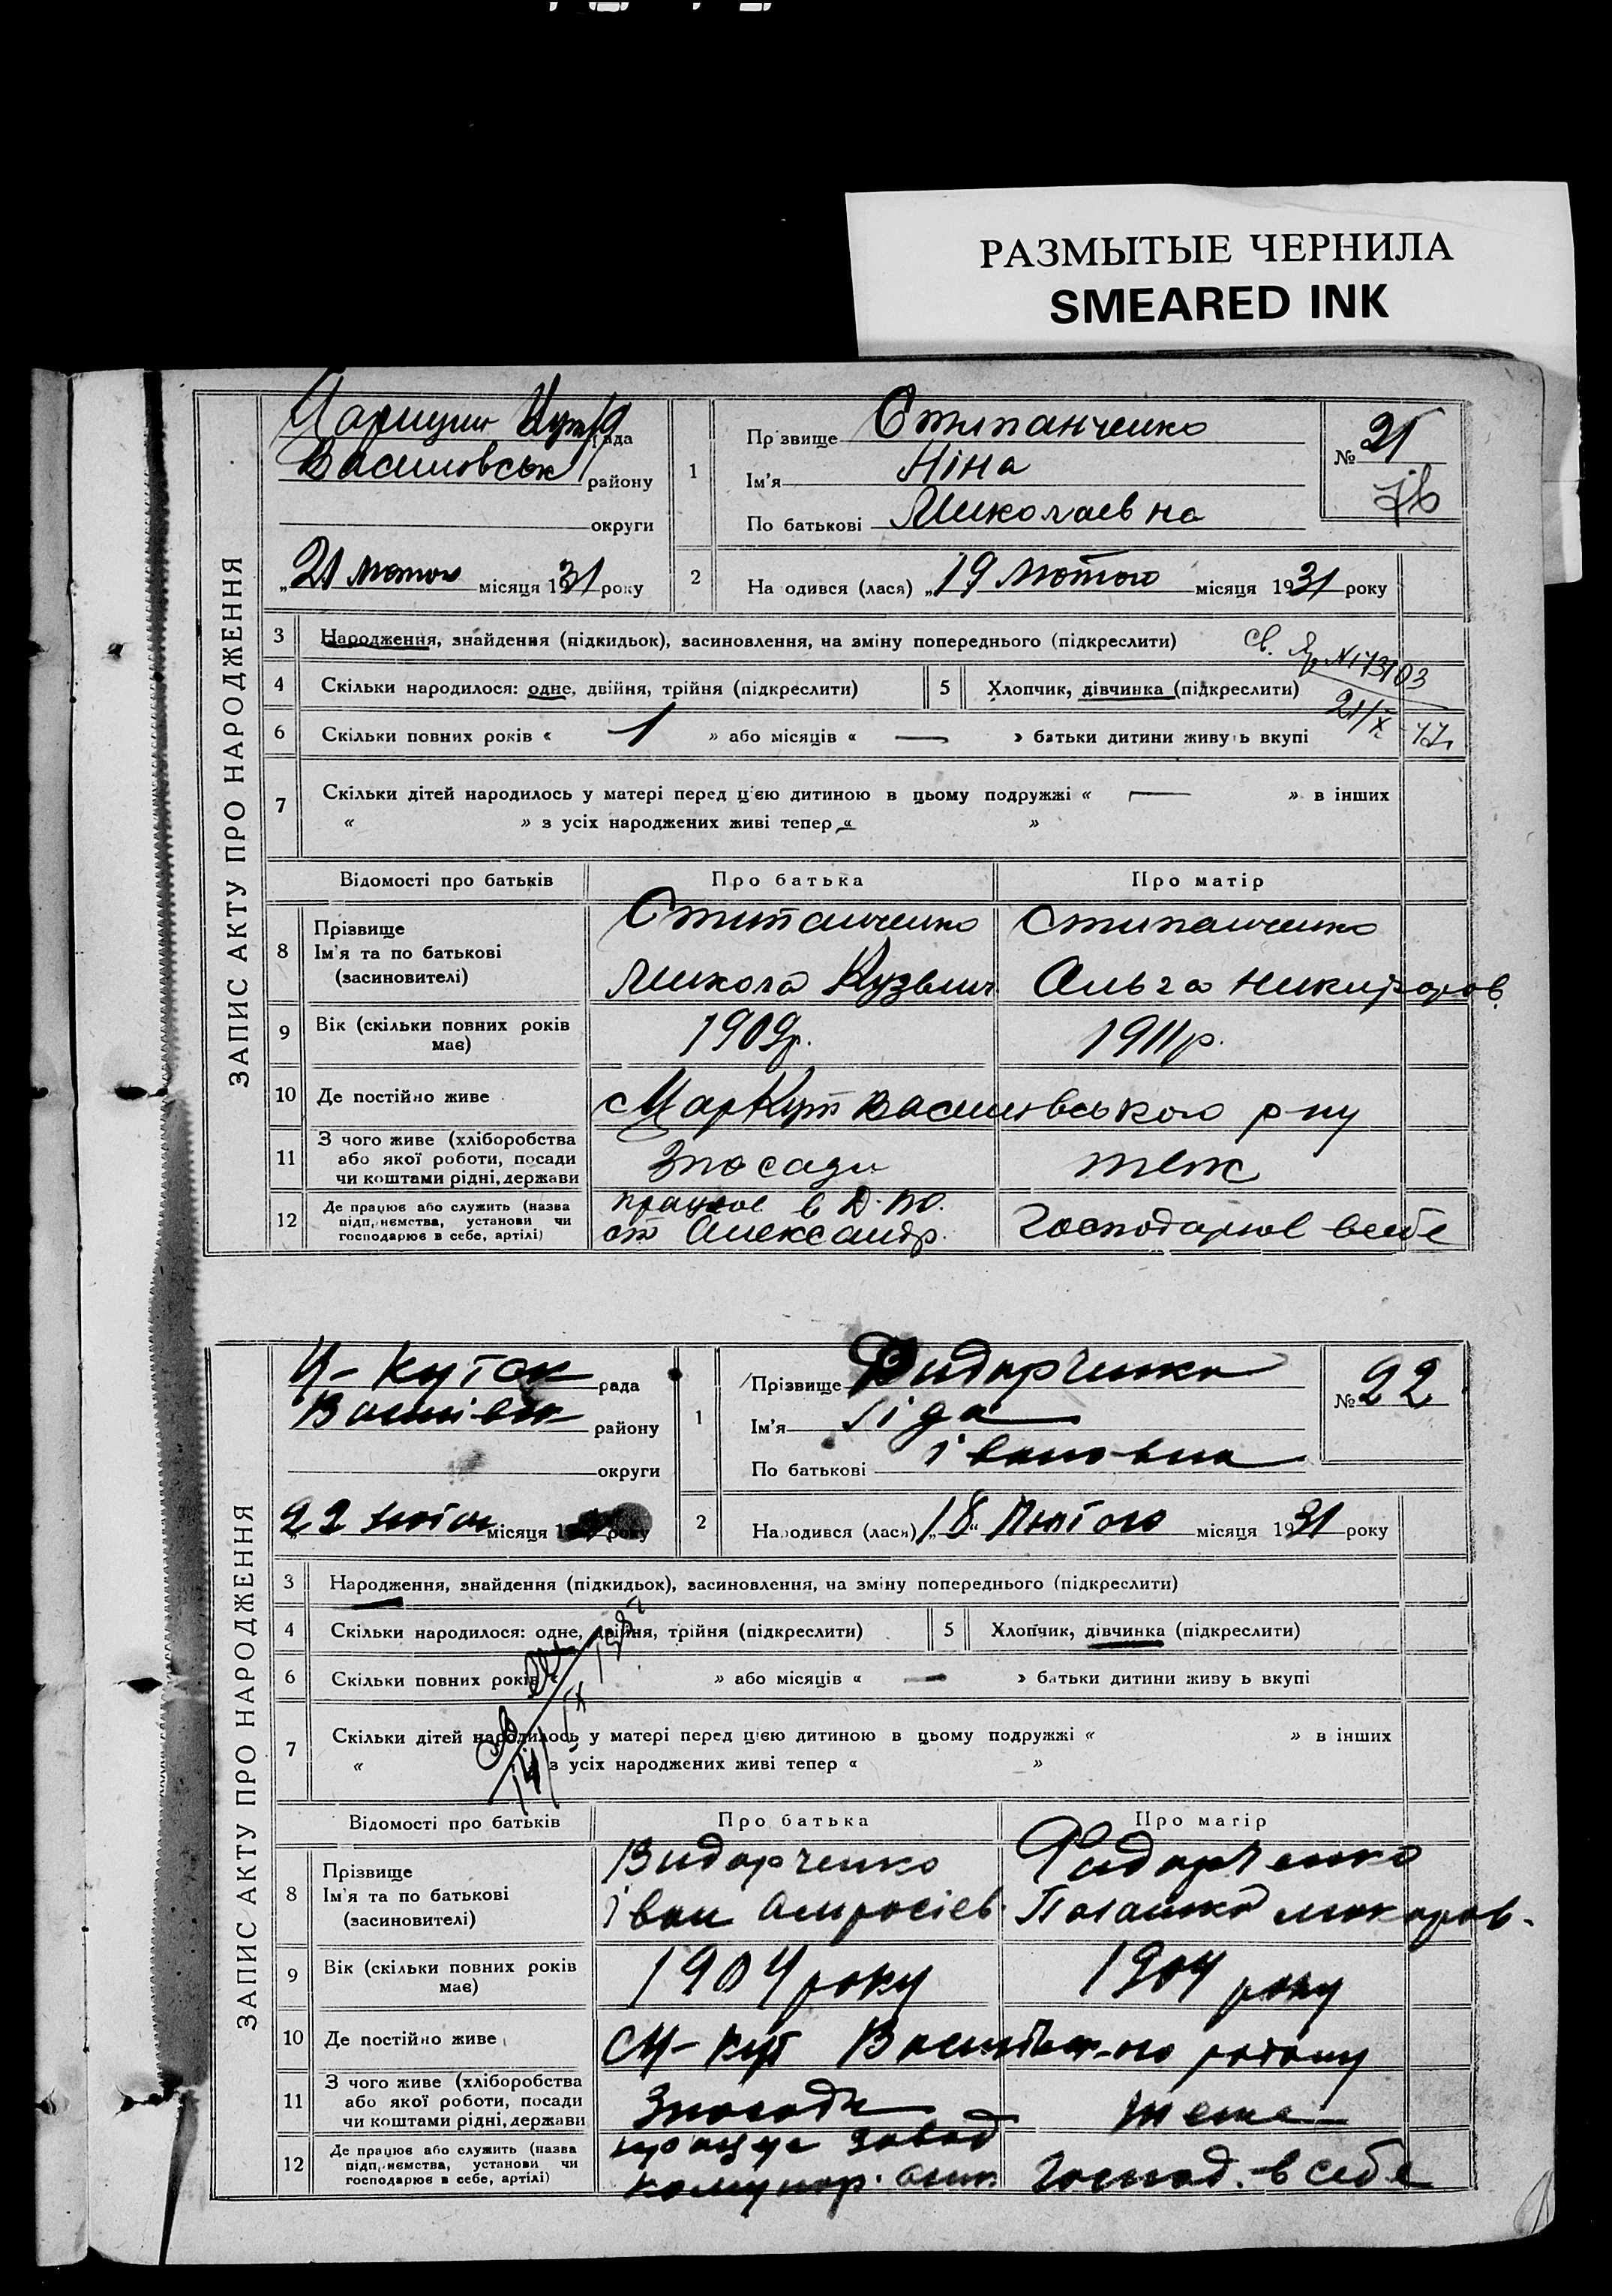 РАЗМЫТЫЕ ЧЕРНИЛА
SMEARED INK
ЗАПИС АКТУ ПРО НАРОДЖЕННЯ
Царицин Кут рада
Василівськ району
округи
„21 лютого місяця 1931 року
1
Прізвище Стипанченко
Ім'я Ніна
По батькові Миколаевна
№ 21
2
На одився (лася) „19 Лютого місяця 1931 року
3 Народження, знайдення (підкидьок), засиновлення, на зміну попереднього (підкреслити)
св.
4 Скільки народилося: одне, двійня, трійня (підкреслити)
5 Хлопчик, дівчинка (підкреслити)
21/X
6 Скільки повних років « 1 » або місяців « — » батьки дитини живу ь вкупі
7 Скільки дітей народилось у матері перед цією дитиною в цьому подружжі « — » в інших
« » з усіх народжених живі тепер « »
Відомості про батьків Про батька Про матір
8 Прізвище
Ім'я та по батькові
(засновителі)
Стипанченко
Микола Кузьмич
Стипанченко
Альга Никифоров.
9 Вік (скільки повних років має) 1909р. 1911р.
10 Де постійно живе сЦарКут Василівського р-ну
11 З чого живе (хліборобства
або якої роботи, посади
чи коштами рідні, держави
Зпосади теж
12 Де працює або служить (назва
підприємства, установи чи
господарює в себе, артілі)
працює в
ст Александр.
Господарює всебе
ЗАПИС АКТУ ПРО НАРОДЖЕННЯ
Ц-Куток рада
Василівськ району
округи
„22 лютого місяця 1931 року
1
Прізвище Видорченко
Ім'я Ліда
По батькові Івановна
№ 22
2
Народився (лася) „18„ Лютого місяця 1931 року
3 Народження, знайдення (підкидьок), засиновлення, на зміну попереднього (підкреслити)
4 Скільки народилося: одне, двійня, трійня (підкреслити)
5 Хлопчик, дівчинка (підкреслити)
6 Скільки повних років « » або місяців « — » батьки дитини живу ь вкупі
7 Скільки дітей народилось у матері перед цією дитиною в цьому подружжі « » в інших
« » з усіх народжених живі тепер « »
Відомості про батьків Про батька Про матір
8 Прізвище
Ім'я та по батькові
(засновителі)
Видорченко
Іван Амросіев.
Фидорченко
Палашка макаров-
9 Вік (скільки повних років має) 1904 року 1904 року
10 Де постійно живе сЦ-Кут Василівського району
11 З чого живе (хліборобства
або якої роботи, посади
чи коштами рідні, держави
Зпосади теже
12 Де працює або служить (назва
підприємства, установи чи
господарює в себе, артілі)
працує завод
комунар.
Господ. в себе